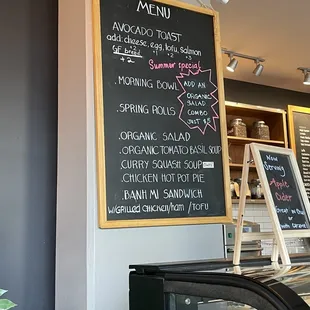 MENU
AVOCADO TOAST
add: cheese, egg, tofu, salmon
GF bread +2 +2 +3
+2
Summer special
. MORNING BOWL
ADD AN
ORGANIC
SALAD
COMBO
JUST $5
. SPRING ROLLS
. ORGANIC SALAD
. ORGANIC TOMATO BASIL SOUP
CURRY SQUASH SOUP
. CHICKEN HOT POT PIE
. BANH MI SANDWICH
W/GRILLED CHICKEN/HAM / TOFU
Now
Serving
Apple
Cider